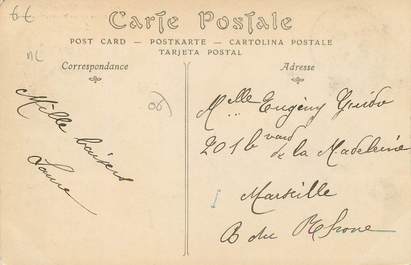 6€
nc
Carte Postale
POST CARD — POSTKARTE — CARTOLINA POSTALE
TARJETA POSTAL
Correspondance
Adresse
06
Mille baisers
Laure
Melle Eugèny Guido
201 bvard de la Madeleine
Marseille
B du Rhone